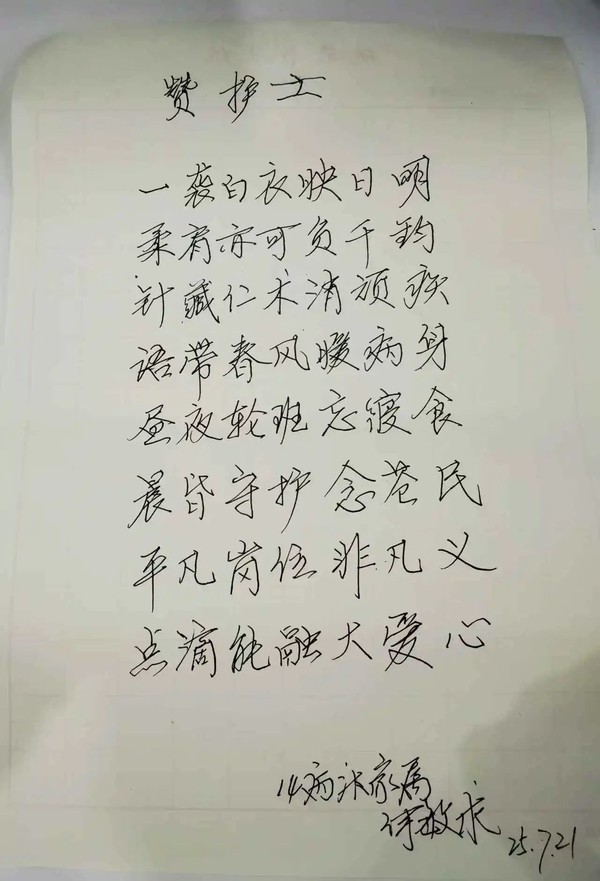 赞护士
一袭白衣映日明
柔肩亦可负千钧
针藏仁术消顽疾
语带春风暖病身
昼夜轮班忘寝食
晨昏守护念苍民
平凡岗位非凡义
点滴能融大爱心
14病床家属
25.7.21